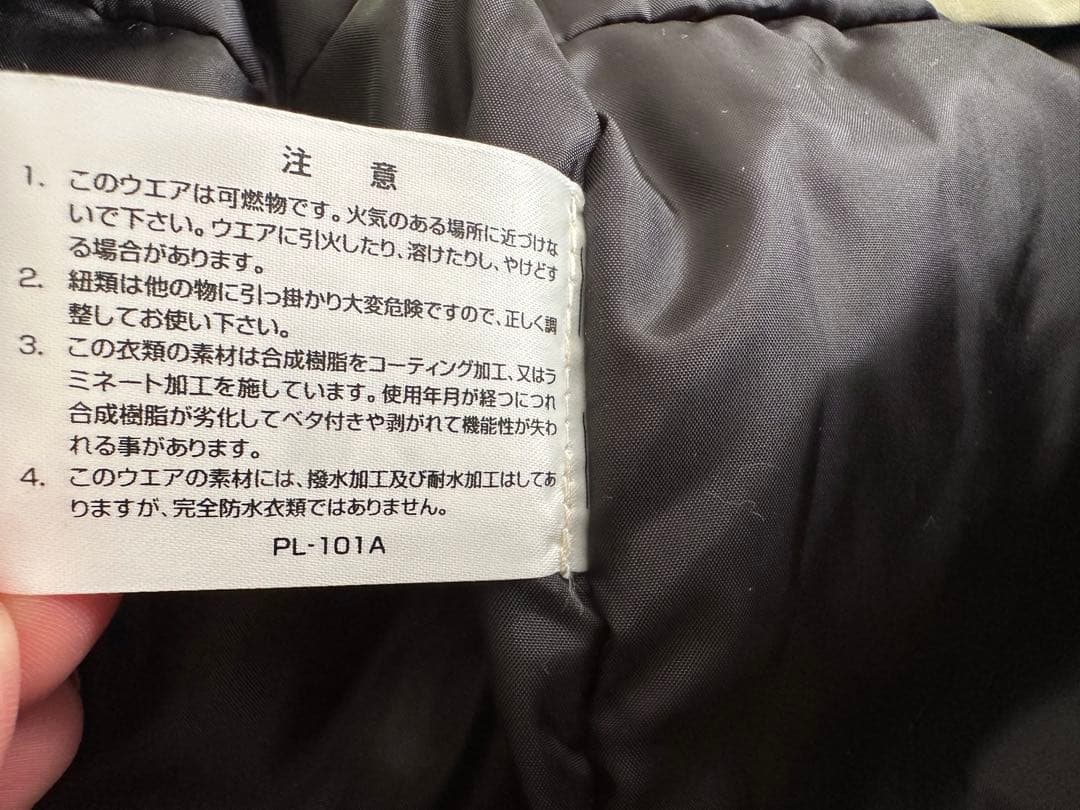 注 意
1. このウエアは可燃物です。火気のある場所に近づけな
いで下さい。ウエアに引火したり、溶けたりし、やけどす
る場合があります。
2. 紐類は他の物に引っ掛かり大変危険ですので、正しく調
整してお使い下さい。
3. この衣類の素材は合成樹脂をコーティング加工、又はラ
ミネート加工を施しています。使用年月が経つにつれ
合成樹脂が劣化してベタ付きや剥がれて機能性が失わ
れる事があります。
4. このウエアの素材には、撥水加工及び耐水加工はしてあ
りますが、完全防水衣類ではありません。
PL-101A